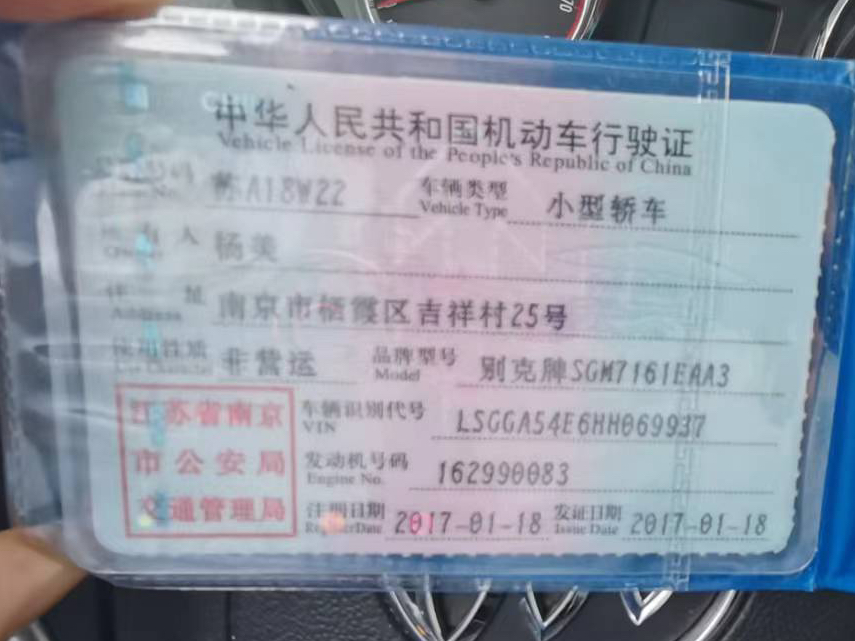 中华人民共和国机动车行驶证
Vehicle License of the People's Republic of China
号牌号码 苏A18W22 车辆类型 小型轿车
Vehicle Type
所有人 杨美
Owner
住址 南京市栖霞区吉祥村25号
Address
使用性质 非营运 品牌型号 别克牌SGM7161EAA3
Use Character Model
江苏省南京 车辆识别代号 LSGGA54E6HH069937
VIN
市公安局 发动机号码 162990083
Engine No.
交通管理局 注册日期 2017-01-18 发证日期 2017-01-18
Register Date Issue Date